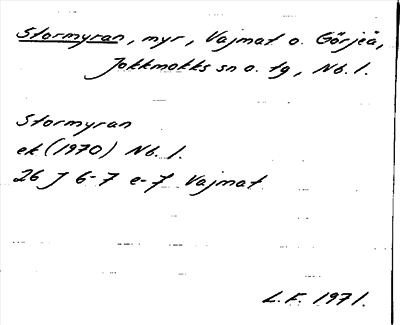 Stormyran, myr, Vajmat o. Görjeå,
Jokkmokks sn o. tg, Nb. l.
Stormyran
ek (1970) Nb. l.
26 J 6-7 e-f Vajmat
L.F. 1971.